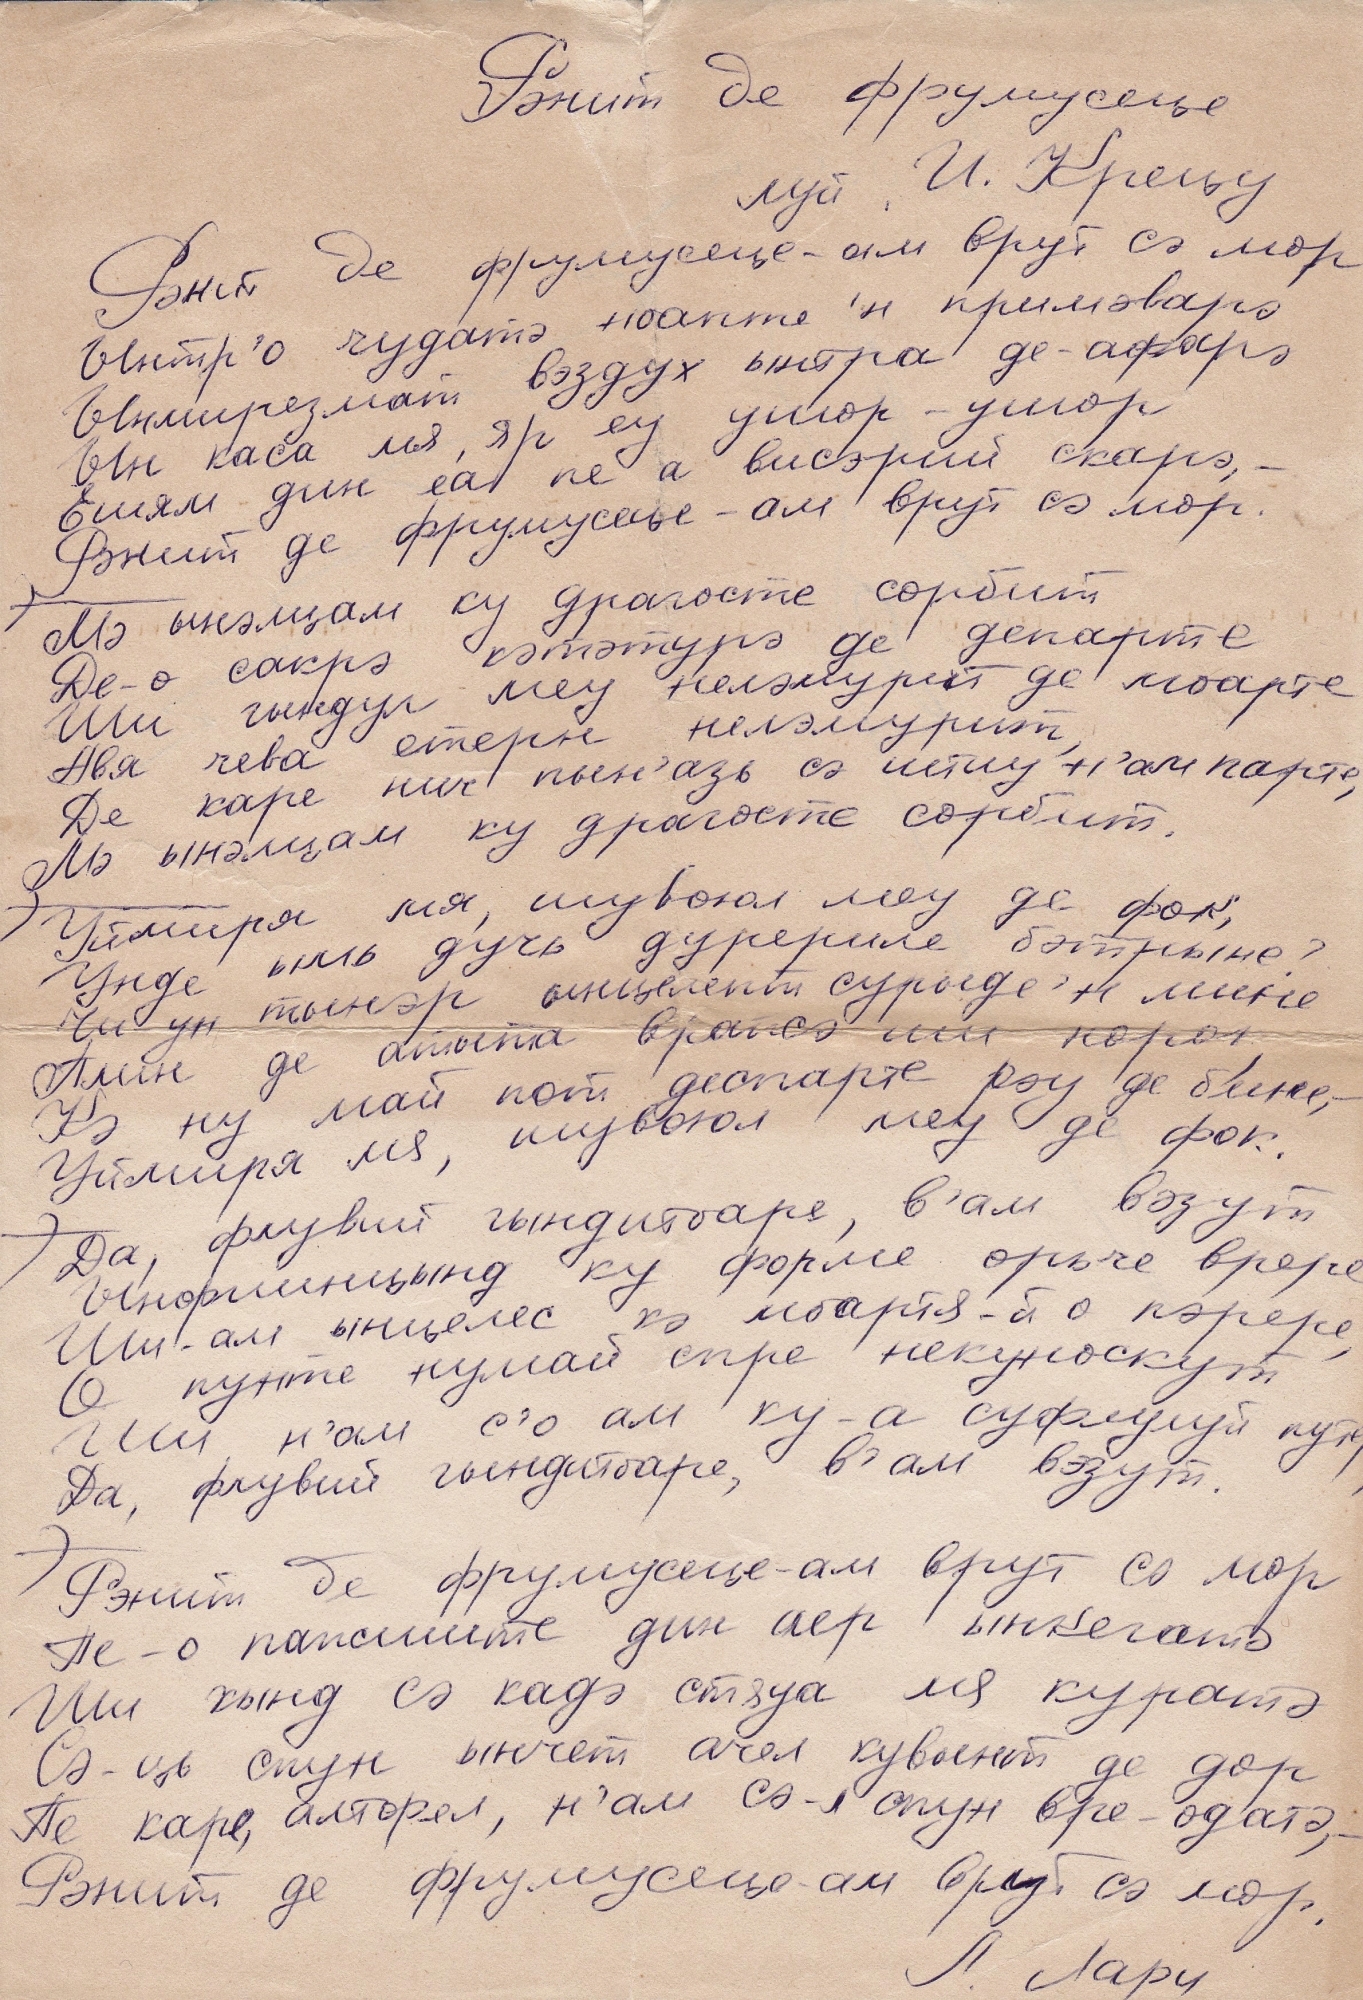 Рэнит де фрумусеце
луй И. Крецу
Рэнит де фрумусеце-ам врут сэ мор
Ынтр'о чудатэ ноапте 'н примэварэ
Ынмирезмат вэздух ынтра де-афарэ
Ын каса мя, яр еу ушор-ушор
Ешям дин еа пе а висэрий скарэ,-
Рэнит де фрумусеце-ам врут сэ мор.
Мэ ынэлцам ку драгосте сорбит
Де-о сакрэ кэтэтурэ де департе
Ши гындул меу нелэмурит де моарте
Авя чева етерн нелэмурит,
Де каре нич пын'азь сэ штиу н'ам парте,
Мэ ынэлцам ку драгосте сорбит.
Уймиря мя, шувоюл меу де фок,
Унде ымь дучь дурериле бэтрыне?
Чи ун тынэр ынцелепт сурыде 'н мине
Плин де атыта врапсэ ши норок
Кэ ну май пот деспарте рэу де бине,-
Уймиря мя, шувоюл меу де фок.
Да, флувий гындитоаре, в'ам вэзут
Ынфиинцынд ку форме орьче врере
Ши-ам ынцелес кэ моартя-й о пэрере,
О пунте нумай спре некуноскут
Ши н'ам с'о ам ку-а суфлулуй путере,
Да, флувий гындитоаре, в'ам вэзут.
Рэнит де фрумусеце-ам врут сэ мор
Пе-о пажиште дин аер ынкегатэ
Ши кынд сэ кадэ стяуа мя куратэ
Сэ-ць спун ынчет ачел кувынт де дор
Пе каре, алторел, н'ам сэ-л спун вре-одатэ,-
Рэнит де фрумусеце-ам врут сэ мор.
Л. Лари